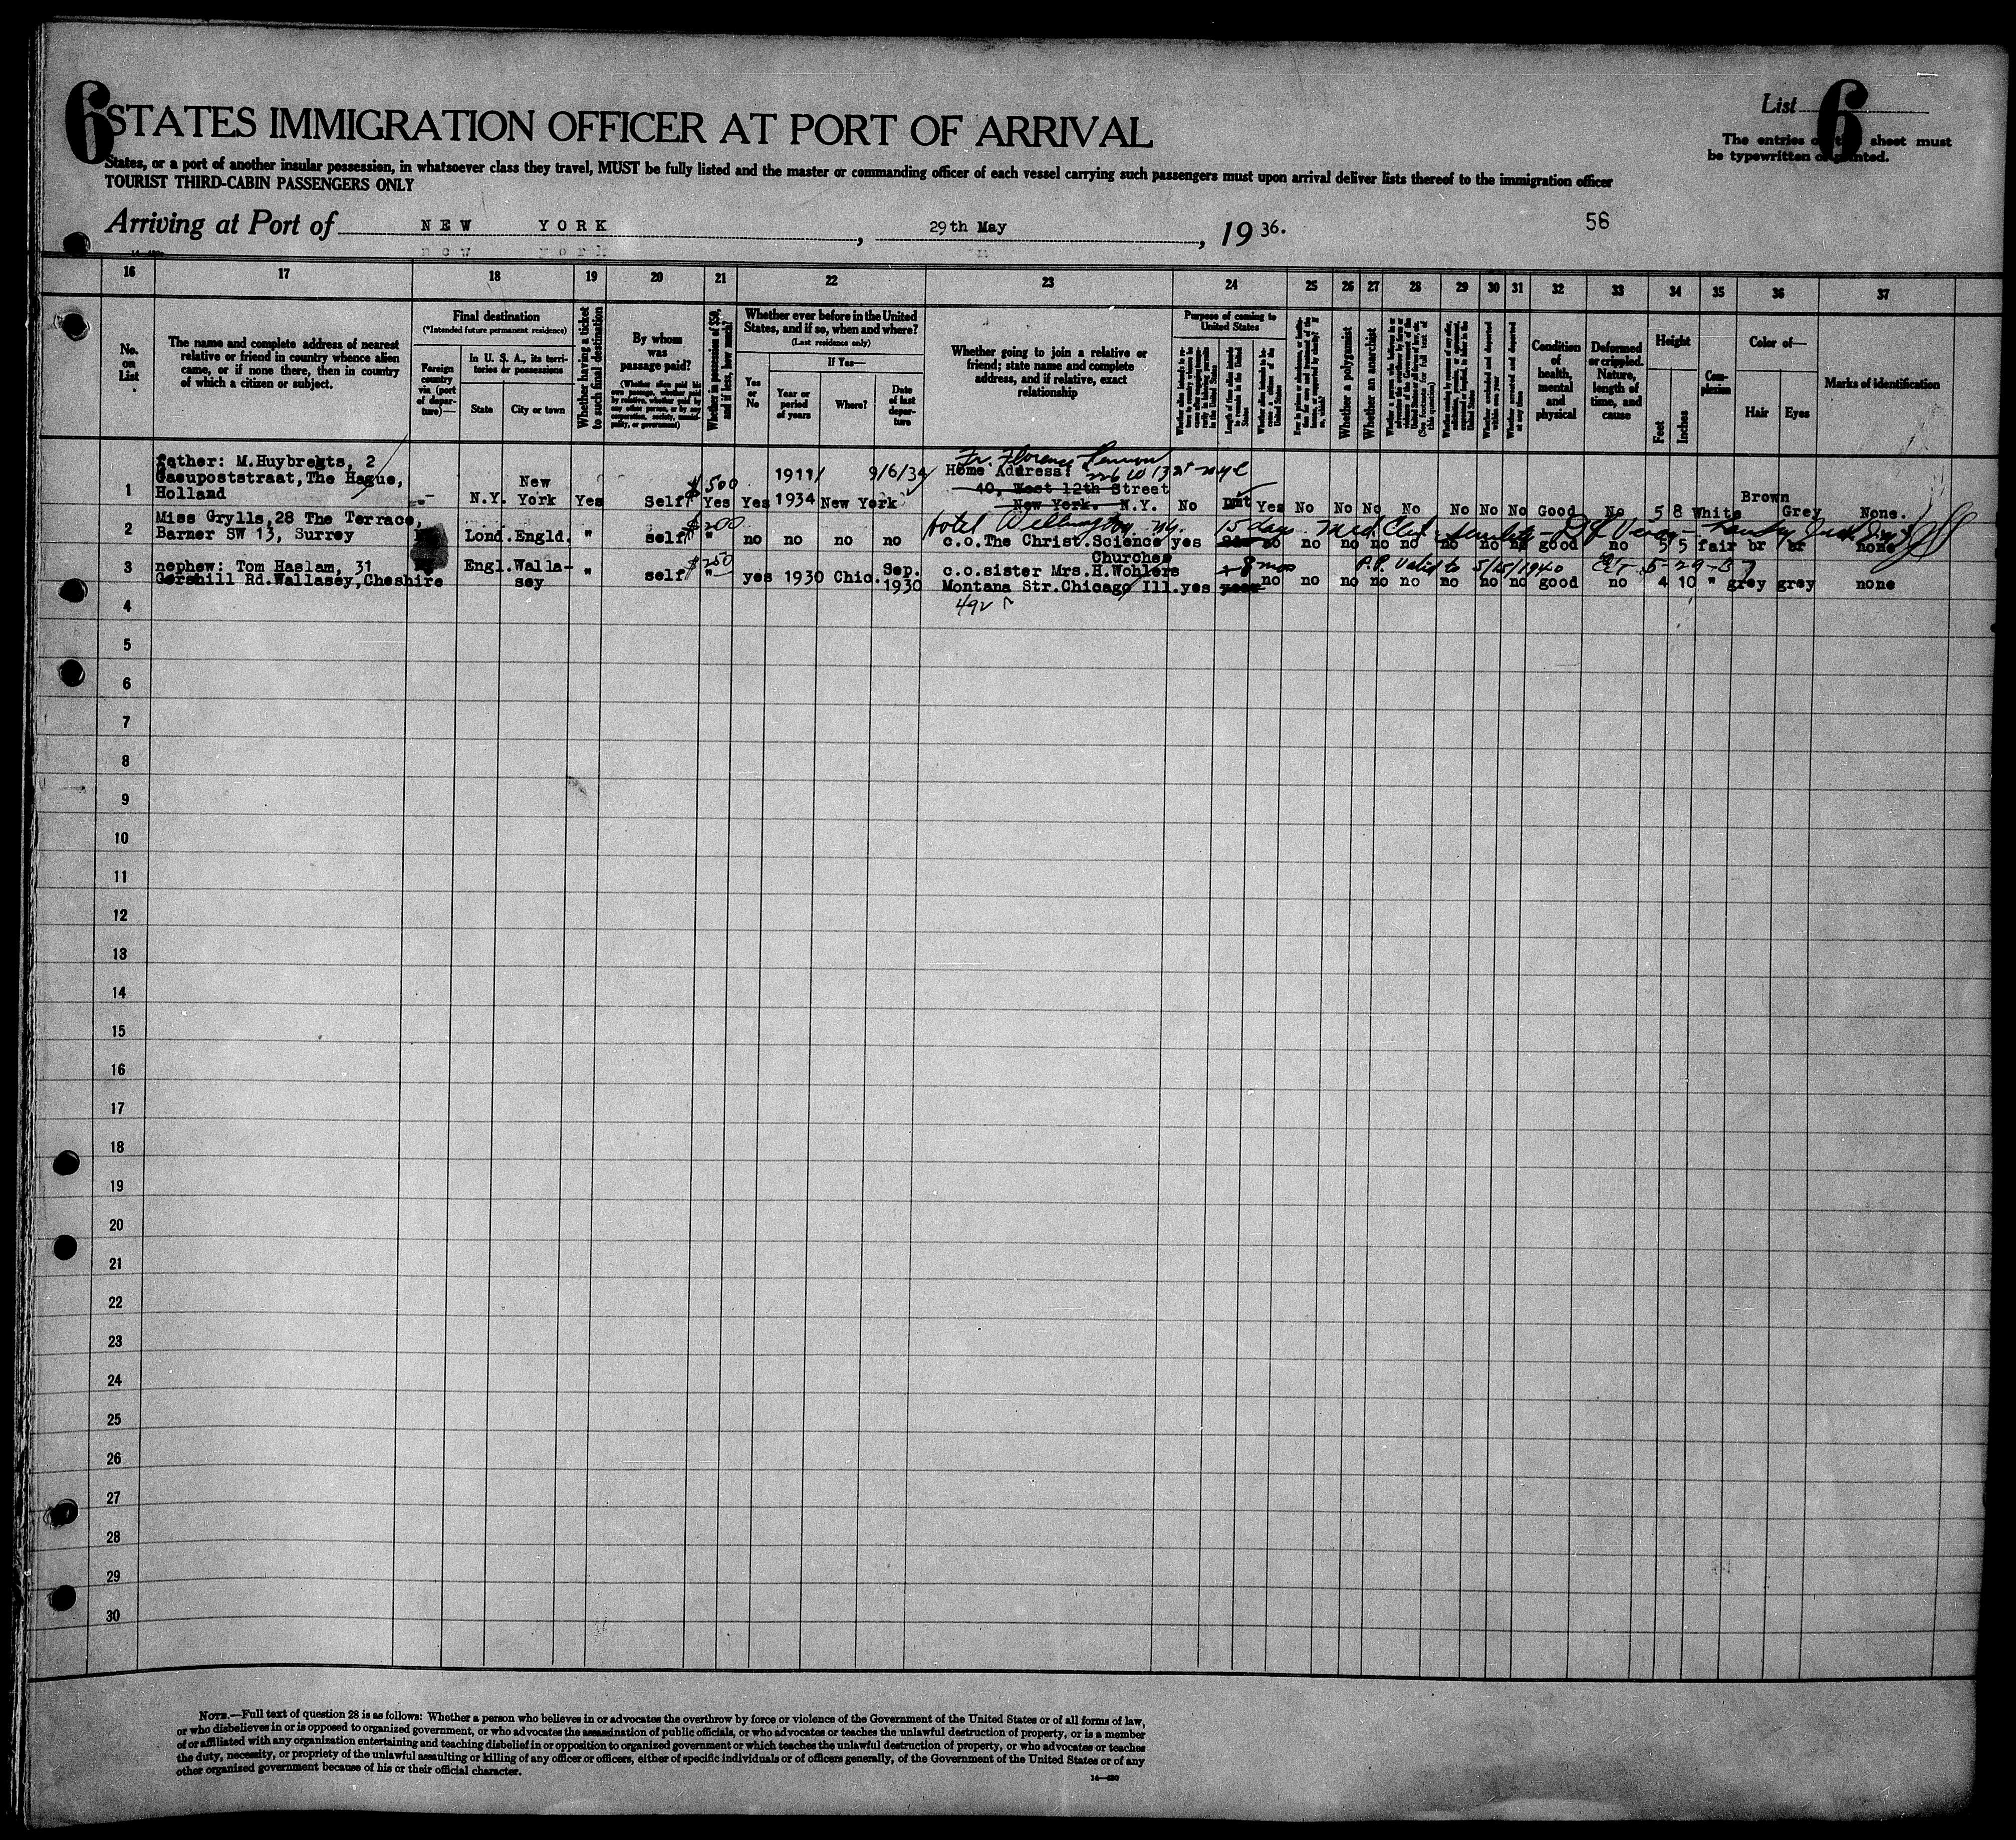 6 STATES IMMIGRATION OFFICER AT PORT OF ARRIVAL
List 6
The entries on this sheet must
be typewritten or printed.
States, or a port of another insular possession, in whatsoever class they travel, MUST be fully listed and the master or commanding officer of each vessel carrying such passengers must upon arrival deliver lists thereof to the immigration officer
TOURIST THIRD-CABIN PASSENGERS ONLY
Arriving at Port of NEW YORK, 29th May, 1936.
56
16 17 18 19 20 21 22 23 24 25 26 27 28 29 30 31 32 33 34 35 36 37
No. on List
The name and complete address of nearest
relative or friend in country whence alien
came, or if none there, then in country
of which a citizen or subject.
Final destination
(*Intended future permanent residence)
Foreign country via (port of departure)—
In U. S. A., its territories or possessions
State
City or town
Whether having a ticket to such final destination
By whom was passage paid?
(Whether alien paid his own passage, whether paid by relative, whether paid by any other person, or by any corporation, society, municipality, or government)
Whether in possession of $50, and if less, how much?
Whether ever before in the United
States, and if so, when and where?
(Last residence only)
Yes or No
If Yes—
Year or period of years
Where?
Date of last departure
Whether going to join a relative or
friend; state name and complete
address, and if relative, exact
relationship
Purpose of coming to United States
Length of time alien intends to remain in the United States
Whether a polygamist
Whether an anarchist
Whether arrested and deported at any time
Condition of health, mental and physical
Deformed or crippled. Nature, length of time, and cause
Height
Feet
Inches
Complexion
Color of—
Hair
Eyes
Marks of identification
1 father: M.Huybregts, 2
Gasupoststraat, The Hague,
Holland
-- N.Y. New York Yes Self $500 Yes Yes 1911/ 1934 New York 9/6/34
Fr. Florence
Home Address: 226 W 13 St NYC
40, West 12th Street
New York. N.Y. No Pmt Yes No No No No No No No Good No 5 8 White Brown Grey None.
2 Miss Grylls, 28 The Terrace,
Barner SW 13, Surrey
Lond. Engld. " self $200 " no no no no
Hotel Wellington NY. 15 days Med. Cert. Senility
c.o.The Christ.Science yes no no no no no no no no no good no 5 5 fair br br none
Churches
3 nephew: Tom Haslam, 31
Gorshill Rd.Wallasey,Cheshire
Engl. Wallasey " self $250 " yes 1930 Chic. Sep. 1930
c.o.sister Mrs.H.Wohlers 8 mos P.P. Valid to 5/15/1940
Montana Str.Chicago Ill. yes year no no no no no no no no good no 4 10 " grey grey none
492
4
5
6
7
8
9
10
11
12
13
14
15
16
17
18
19
20
21
22
23
24
25
26
27
28
29
30
NOTE.—Full text of question 28 is as follows: Whether a person who believes in or advocates the overthrow by force or violence of the Government of the United States or of all forms of law,
or who disbelieves in or is opposed to organized government, or who advocates the assassination of public officials, or who advocates or teaches the unlawful destruction of property, or is a member
of or affiliated with any organization entertaining and teaching disbelief in or opposition to organized government or which teaches the unlawful destruction of property, or who advocates or teaches
the duty, necessity, or propriety of the unlawful assaulting or killing of any officer or officers, either of specific individuals or of officers generally, of the Government of the United States or of any
other organized government because of his or their official character.